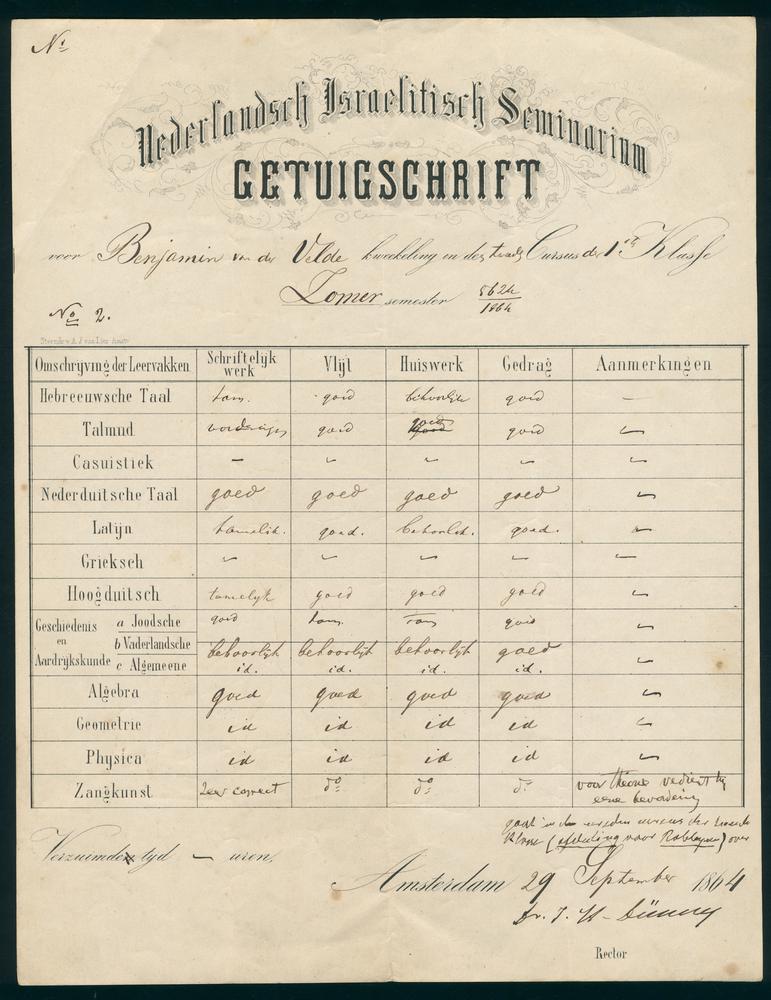 No
Nederlandsch Israelitisch Seminarium
GETUIGSCHRIFT
voor Benjamin van der Velde kweekeling in den Cursus der 1ste Klasse
Zomer semester 5624/1864
No 2.
Omschrijving der Leervakken. Schriftelijk werk Vlijt Huiswerk Gedrag Aanmerkingen
Hebreeuwsche Taal tam. goed behoorlijk goed —
Talmud goed goed goed
Casuistiek —
Nederduitsche Taal goed goed goed goed
Latijn tamelijk. goed. behoorlijk. goed.
Grieksch
Hoogduitsch tamelyk goed goed goed
Geschiedenis en Aardrijkskunde
a Joodsche goed tam. tam. goed
b Vaderlandsche behoorlijk behoorlijk behoorlijk goed
c Algemeene id. id. id. id.
Algebra goed goed goed goed
Geometrie id id id id
Physica id id id id
Zangkunst zeer correct do do do voor theorie verdient hij
eene
gaat in den cursus der tweede
Klasse (afdeeling voor Rabbijnen) over
Verzuimde tyd — uren,
Amsterdam 29 September 1864
Dr. J. H. Dünner
Rector